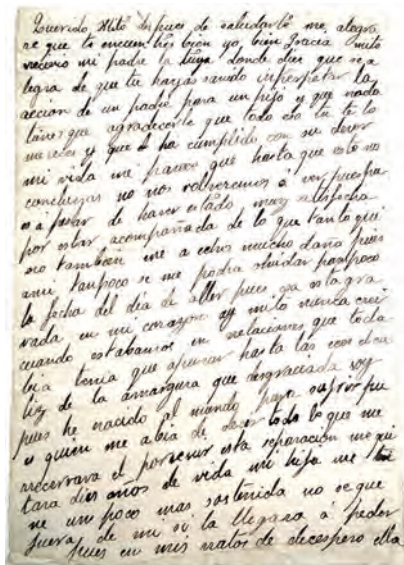 Querido Mito despues de saludarte me alegra
re que te encuentres bien yo bien gracia mito
recivio mi padre la tuya donde dice que se a
legra de que tu hayas savido interpretar la
accion de un padre para un hijo y que nada
tienes que agradecerle que todo eso tu te lo
mereces y que el ha cumplido con su dever
mi vida me parece que hasta que esto no
concluyas no nos volveremos á ver pues pa
sa á pesar de haver estado muy satisfecha
por estar acompañada de lo que tanto qui
ero tambien me a echo mucho daño pues
ami tampoco se me podra olvidar tampoco
la fecha del dia de aller pues esa esta gra
vada en mi corazon ay mito nunca crei
cuando estabamos en relaciones que toda
bia tenia que apurar hasta las eces el ca
liz de la amargura que desgraciada soy
pues he nacido al mundo para sufrir pu
s quien me abia de decir todo lo que me
recervava el porvenir esta separacion me qui
tara dies años de vida mi hija me tie
ne un poco mas sostenida no se que
fuera de mi si la llegara á perder
pues en mis ratos de decespero ella